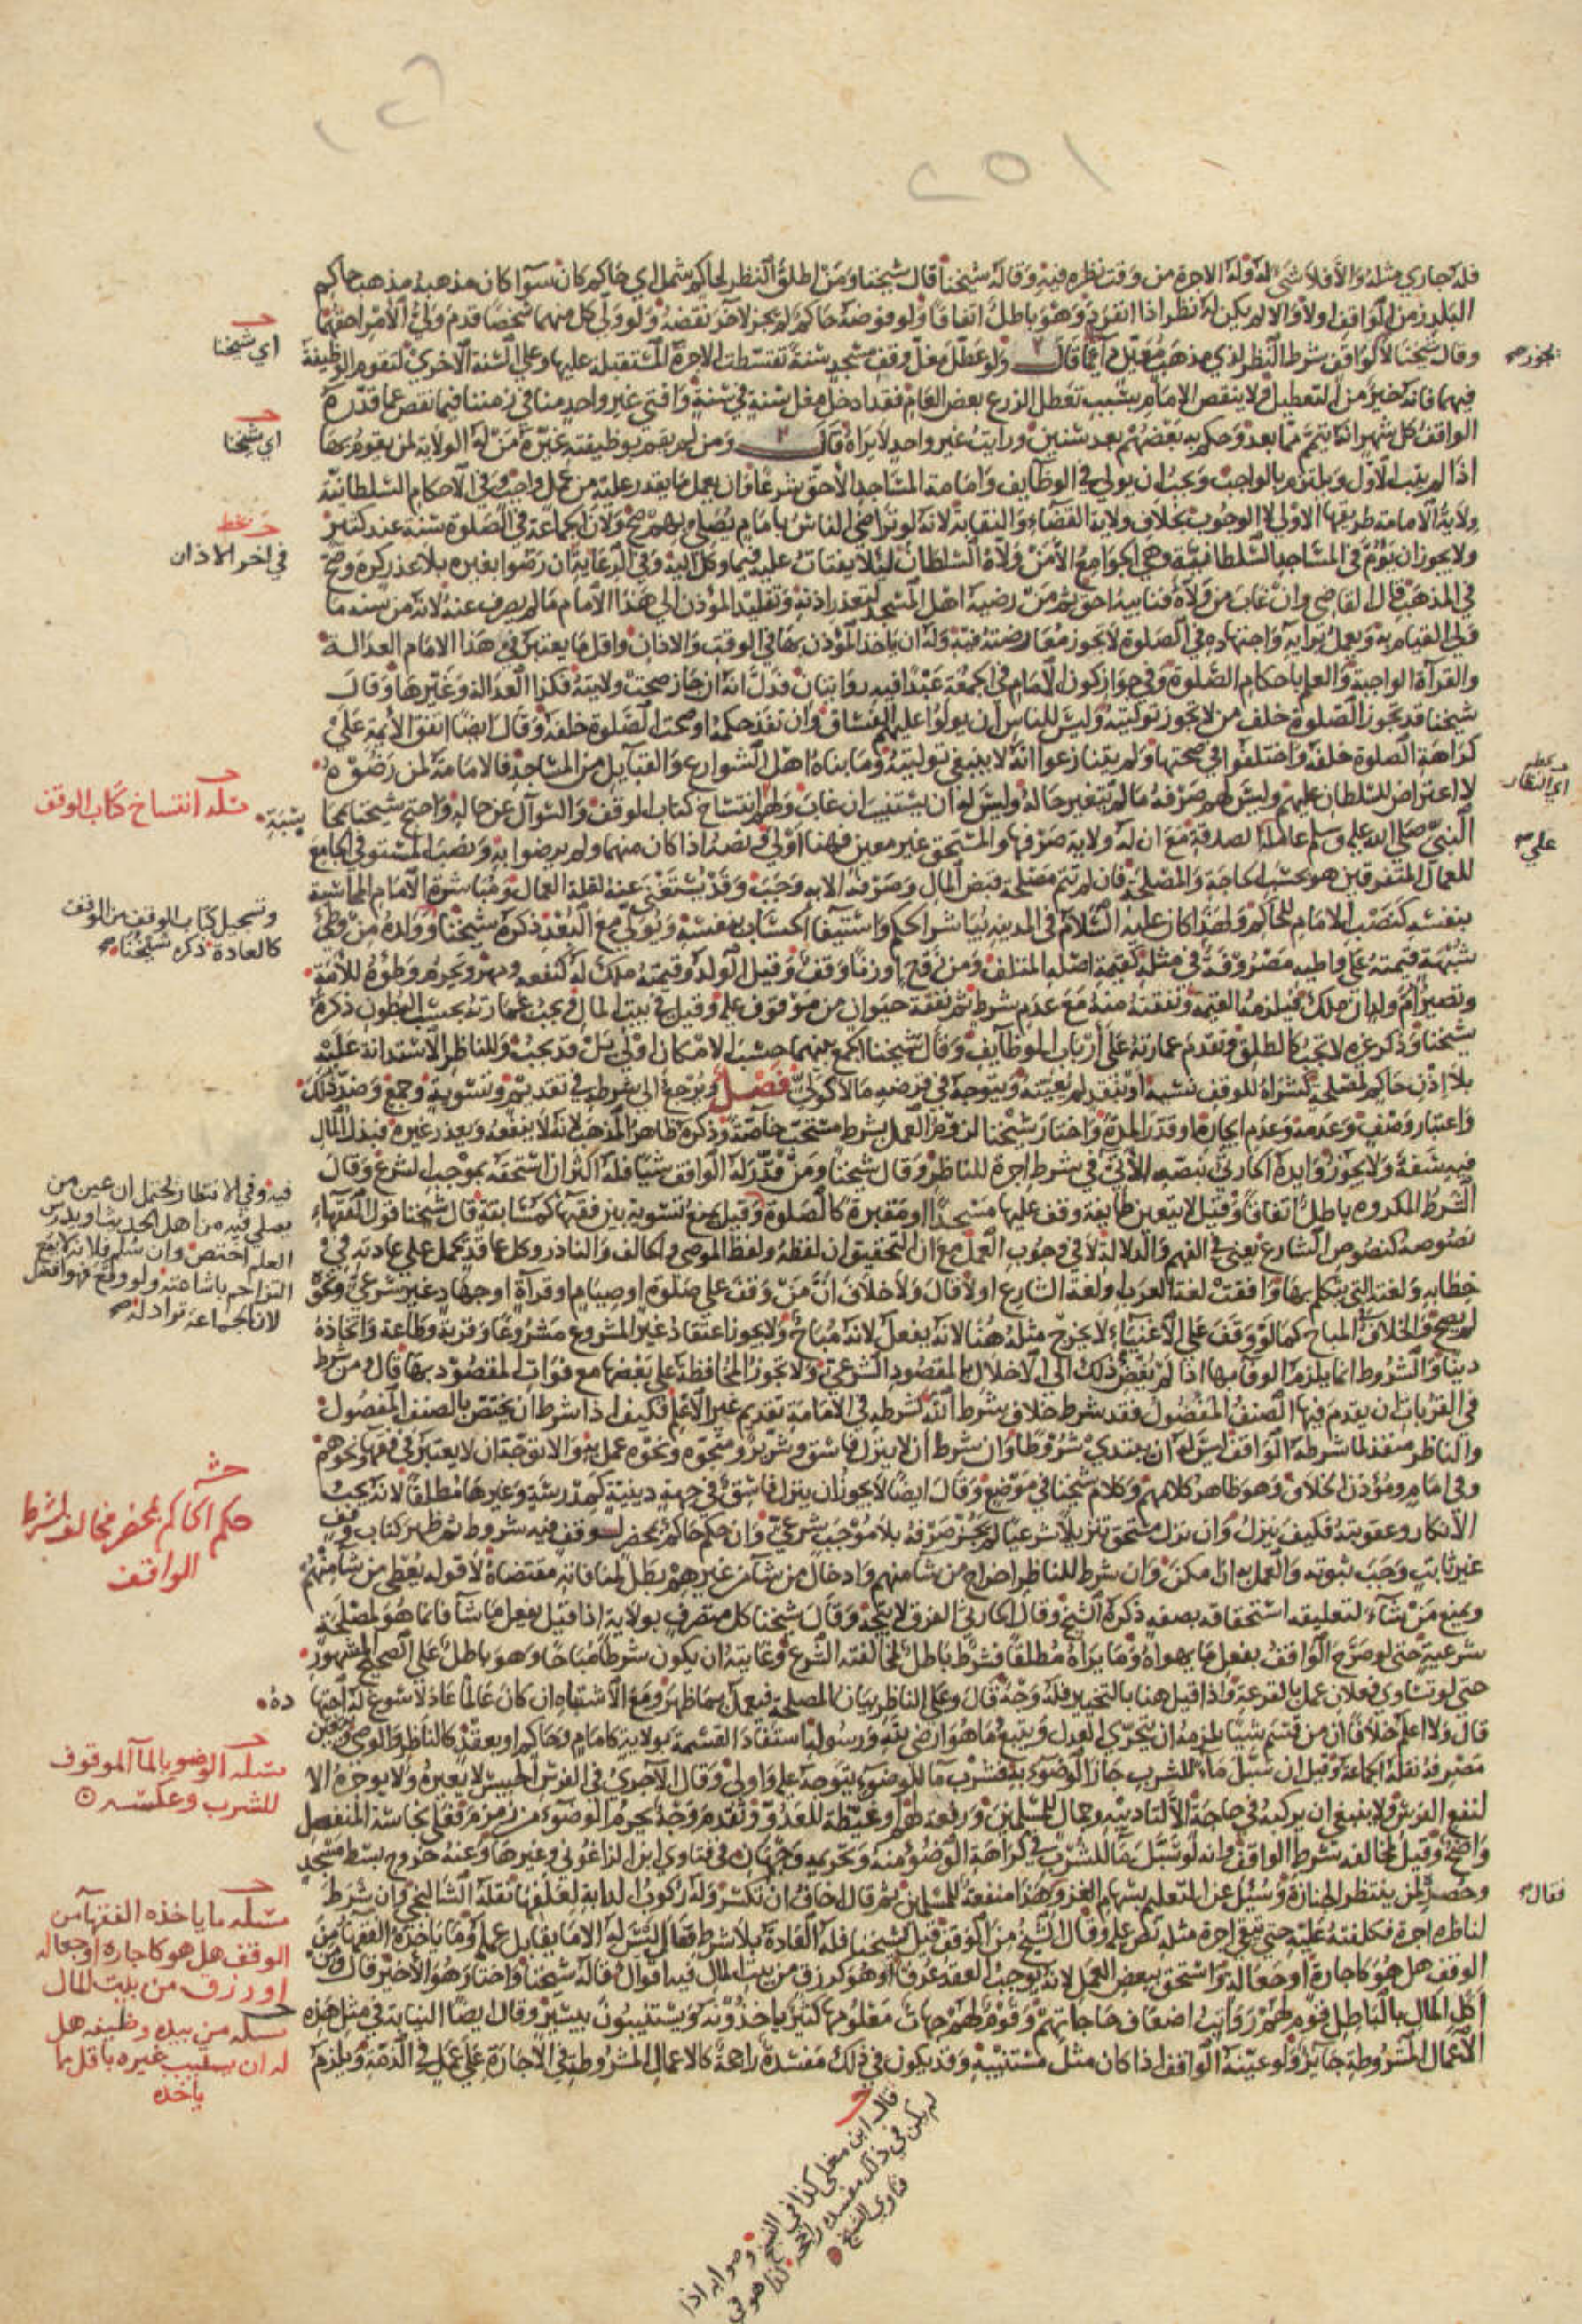 ١٢٦
٢٥١
فله جاري مثله والا فلا شيء له وله الاجرة من وقت نظره فيه وقاله شيخنا قال شيخنا ومن اطلق النظر لحاكم شمل اي حاكم كان سوا كان مذهبه مذهب حاكم
البلد زمن الواقف اولا والا لم يكن له نظر اذا انفرد وهو باطل اتفاقا ولو فوضه حاكم لم يجز لاخر نقضه ولو ولى كل منهما شخصا قدم ولي الامر احقهما
وقال شيخنا لا لواقف شرط النظر لذي مذهب معين دائما قال ولو عطل مغل وقف مسجد سنة تقسطت الاجرة المستقبلة عليها وعلى السنة الاخرى لتقوم الوظيفة
فيهما فانه خير من التعطيل ولا ينقص الامام بسبب تعطل الزرع بعض العام فقد ادخل مغل سنة في سنة وافتى غير واحد منا في زمننا فيما نقص عما قدره
الواقف كل شهر انه يتمم مما بعد وحكم به بعضهم بعد سنين ورايت غير واحد لا يراه قال ومن لم يقم بوظيفته غيره من له الولاية لمن يقوم بها
اذا لم يتب الاول ويلتزم بالواجب ويجب ان يولي في الوظايف وامامة المساجد الاحق شرعا وان يعمل ما يقدر عليه من عمل واجب وفي الاحكام السلطانية
ولاية الامامة طريقها الاولى لا الوجوب بخلاف ولاية القضاء والنقابة لانه لو تراضى الناس بامام يصلي بهم صح ولان الجماعة في الصلوة سنة عند كثير
ولا يجوز ان يؤم في المساجد السلطانية وهي الجوامع الا من ولاه السلطان ليلا يفتات عليه فيما وكل اليه وفي الرعاية ان رضوا بغيره بلا عذر كره وصح
في المذهب قال القاضي وان غاب من ولاه فنايبه احق ثم من رضيه اهل المسجد لتعذر اذنه وتقليد المؤذن الى هذا الامام ما لم يصرف عنه لانه من سنة ما
ولي القيام به ويعمل برايه واجتهاده في الصلوة لا يجوز معارضته فيه وله ان ياخذ المؤذن بها في الوقت والاذان واقل ما يعتبر في هذا الامام العدالة
والقرآة الواجبة والعلم باحكام الصلوة وفي جواز كون الامام في الجمعة عبدا فيه روايتان فدل انه ان جاز صحت ولايته فكذا العدالة وغيرها وقال
شيخنا قد تجوز الصلوة خلف من لا يجوز توليته وليس للناس ان يولوا عليهم الفساق وان نفذ حكمه او صحت الصلوة خلفه وقال ايضا اتفق الائمة على
كراهة الصلوة خلفه واختلفوا في صحتها ولم يتنازعوا انه لا ينبغي توليته وما بناه اهل الشوارع والقبايل من المساجد فالامامة لمن رضوه
لا اعتراض للسلطان عليهم وليس لهم صرفه ما لم يتغير حاله وليس له ان يستنيب ان غاب ولهم انتساخ كتاب الوقف والسوال عن حاله واحتج شيخنا بمحاسبة
النبي صلى الله عليه وسلم عامله على الصدقة مع ان له ولاية صرفها والمستحق غير معين فهنا اولى ونصه اذا كان متهما ولم يرضوا به ونصب المستوفي الجامع
للعمال المتفرقين هو بحسب الحاجة والمصلحة فان لم تتم مصلحة قبض المال وصرفه الا به وجب وقد يستغنى عنه لقلة العمال ومباشرة الامام المحاسبة
بنفسه كنصب الامام للحاكم ولهذا كان عليه السلام في المدينة يباشر الحكم واستيفا الحساب بنفسه ويولي مع البعد ذكره شيخنا وولده من وطئ
شبهة قيمته على واطيه مصروفة في مثله كقيمة اصله المتلف ومن زوج او زنا وقف وقيل الولد وقيمته ملك له كنفعه ومهر ويحرم وطؤه للامة
وتصير ام ولد ان ملك فيلزمه القيمة ونفقته منه مع عدم شرط ثم نفقة حيوان من موقوف عليه وقيل في بيت المال ويجب عمارته بحسب البطون ذكره
شيخنا وذكر غيره لا تجب كالطلق وتقدم عمارته على ارباب الوظايف وقال شيخنا الجمع بينهما حسب الامكان اولى بل قد يجب وللناظر الاستدانة عليه
بلا اذن حاكم لمصلحة كشرايه للوقف نسيئة او بنقد لم يعينه ويتوجه في قرضه مالا كولي فصل ويرجع الى شرطه في تقديم وتسوية وجمع وضد ذلك
واعتبار وصف وعدمه وعدم ايجاره او قدر المدة واختار شيخنا لزوم العمل بشرط مستحب خاصة وذكره ظاهر المذهب لانه لا ينفعه ويعذر غيره فبذل المال
فيه سفه ولا يجوز وايده الحارثي بنصه الاتي في شرط اجرة للناظر وقال شيخنا ومن قدر له الواقف شيئا فله اكثر ان استحقه بموجب الشرع وقال
الشرط المكروه باطل اتفاقا وقيل لا يتعين طايفة وقف عليها مسجدا او مقبرة كالصلوة وقيل يمنع تسوية بين فقهآء كمسابقة قال شيخنا قول الفقهآء
نصوصه كنصوص الشارع يعني في الفهم والدلالة لا في وجوب العمل مع ان التحقيق ان لفظه ولفظ الموصي والحالف والناذر وكل عاقد يحمل على عادته في
خطابه ولغته التي يتكلم بها وافقت لغة العرب او لغة الشارع اولا قال ولا خلاف ان من وقف على صلوة او صيام او قرآة او جهاد غير شرعي ونحوه
لم يصح والخلاف في المباح كما لو وقف على الاغنياء لا يخرج مثله هنا لانه يفعل لانه مباح ولا يجوز اعتقاد غير المشروع مشروعا وقربة وطاعة واتخاذه
دينا والشروط انما يلزم الوفا بها اذا لم يفض ذلك الى الاخلال بالمقصود الشرعي ولا تجوز المحافظة على بعضها مع فوات المقصود بها قال ومن شرط
في القربات ان يقدم فيها الصنف المفضول فقد شرط خلاف شرط الله كشرطه في الامامة تقديم غير الاعلم فكيف اذا شرط ان يختص بالصنف المفضول
والناظر منفذ لما شرطه الواقف ليس له ان يبتدئ شروطا وان شرط ان لا ينزل فاسق وشرير ومتجوه ونحوه عمل به والا توجه ان لا يعتبر في فقهآء ونحوهم
وفي امام ومؤذن الخلاف وهو ظاهر كلامهم وكلام شيخنا في موضع وقال ايضا لا يجوز ان ينزل فاسق في جهة دينية كمدرسة وغيرها مطلقا لانه يجب
الانكار وعقوبته فكيف ينزل وان نزل مستحق تنزيلا شرعيا لم يجز صرفه بلا موجب شرعي وان حكم حاكم بمحضر لوقف فيه شروط ثم ظهر كتاب وقف
غير ثابت وجب ثبوته والعمل به ان امكن وان شرط للناظر اخراج من شا منهم وادخال من شآء من غيرهم بطل لمنافاته مقتضاه لا قوله يعطي من شا منهم
ويمنع من شآء لتعليقه استحقاقه بصفة ذكره الشيخ وقال الحارثي الفرق لا يتجه وقال شيخنا كل متصرف بولاية اذا قيل يفعل ما شآ فانما هو لمصلحة
شرعية حتى لو صرح الواقف بفعل ما يهواه وما يراه مطلقا فشرط باطل لمخالفته الشرع وغايته ان يكون شرطا مباحا وهو باطل على الصحيح المشهور
حتى لو تساوى فعلان عمل بالقرعة واذا قيل هنا بالتخيير فله وجه قال وعلى الناظر بيان المصلحة فيعمل بما ظهر ومع الاشتباه ان كان عالما عادلا سوغ له اجتهاده
قال ولا اعلم خلافا ان من قسم شيئا يلزمه ان يتحرى العدل ويتبع ما هو ارضى لله ورسوله استفاد القسمة بولاية كامام وحاكم او بعقد كالناظر والوصي ويتعين
مصرفه نقله الجماعة وقيل ان سبل ماء للشرب جاز الوضوء به فشرب ماء للوضوء يتوجه عليه واولى وقال الآجري في الفرس الحبيس لا يعيره ولا يؤجره الا
لنفع الفرس ولا ينبغي ان يركبه في حاجة الا لتاديبه وجمال للمسلمين ورفعة لهم او غيظة للعدو وتقدم وجه يحرم الوضوء من زمزم فعلى نجاسة المنفصل
واضح وقيل لمخالفة شرط الواقف وانه لو سبل ما للشرب في كراهة الوضوء منه وتحريمه وجهان في فتاوي ابن الزاغوني وغيرها وعنه خروج بسط مسجد
وحصره لمن ينتظر الجنازة وسئل عن المتعلم بسهام الغزو وهذا منفعة للمسلمين ثم قال اخاف ان تكسر وله ركوب الدابة لعلفها نقله الشالنجي وان شرط
لناظره اجرة فكلفته عليه حتى تبقى اجرة مثله نص عليه وقال الشيخ من الوقف قيل لشيخنا فله العادة بلا شرط فقال ليس له الا ما يقابل عمله وما ياخذه الفقهآء من
الوقف هل هو كاجارة او جعالة واستحق ببعض العمل لانه يوجب العقد عرفا او هو كرزق من بيت المال فيه اقوال قاله شيخنا واختار هو الاخير قال ومن
اكل المال بالباطل قوم لهم رواتب اضعاف حاجاتهم وقوم لهم جهات معلومها كثير ياخذونه ويستنيبون بيسير وقال ايضا النيابة في مثل هذه
الاعمال المشروطة جايز ولو عينه الواقف اذا كان مثل مستنيبه وقد يكون في ذلك مفسدة راجحة كالاعمال المشروطة في الاجارة على عمل في الذمة ويلزم
يجوز صح
اي النظار
علي صح
فقال صح
اي شيخنا
اي شيخنا
في اخر الاذان
مسئلة انتساخ كتاب الوقف
وتسجيل كتاب الوقف من الوقف
كالعادة ذكره شيخنا
فيه وفي الانتظار يحتمل ان عين من
يصلي فيه من اهل الحديث او يدرس
العلم اختص وان سلم فلانه لا يقع
التزاحم باشاعته ولو وقع فهو افضل
لان الجماعة تراد له
حكم الحاكم بمحضر مخالف لشرط
الواقف
مسئلة الوضو بالمآ الموقوف
للشرب وعكسه
مسئلة ما ياخذه الفقهآ من
الوقف هل هو كاجارة او جعالة
او رزق من بيت المال
مسئلة من بيده وظيفة هل
له ان يستنيب غيره باقل مما
ياخذه
قال ابن مغلي كذا في النسخ وصوابه اذا
لم يكن في ذلك مفسدة راجحة كذا هو في
فتاوي الشيخ